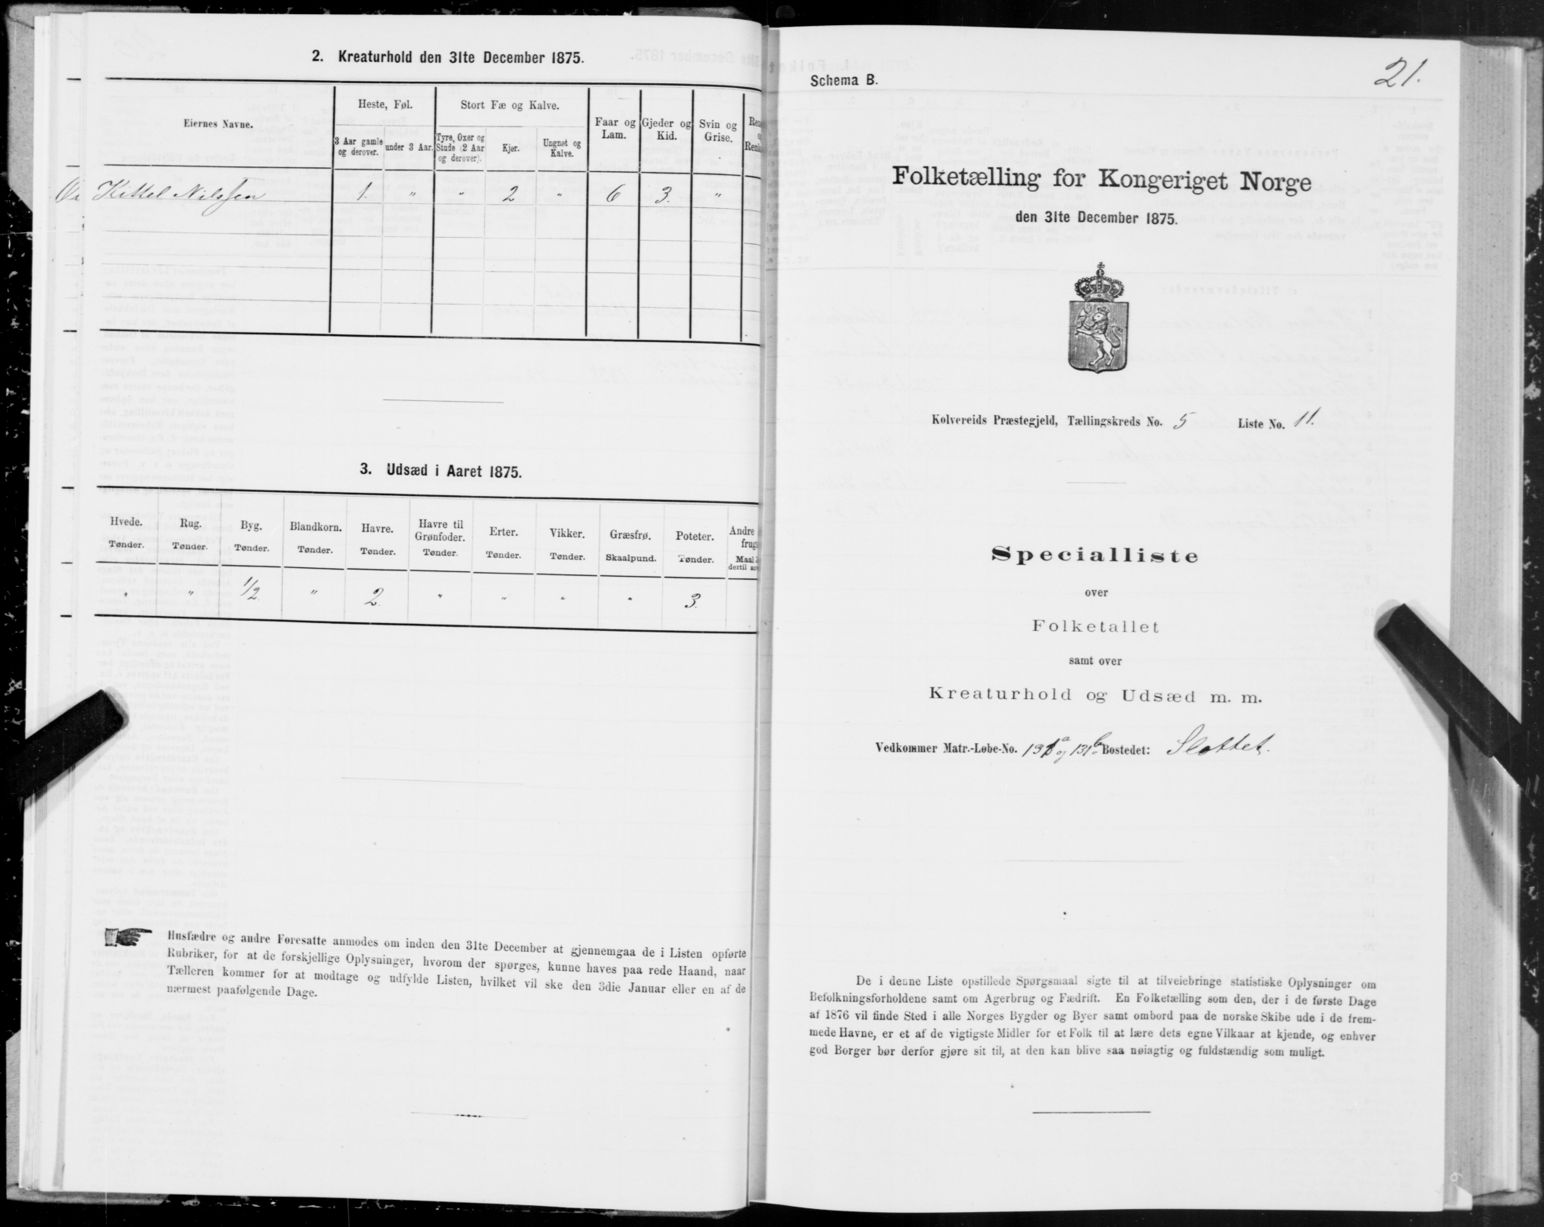 2. Kreaturhold den 31te December 1875.
Eiernes Navne.
Heste, Føl.
Stort Fæ og Kalve.
Faar og Lam.
Gjeder og Kid.
Svin og Grise.
3 Aar gamle og derover.
under 3 Aar.
Tyre, Oxer og Stude (2 Aar og derover).
Kjør.
Ungnøt og Kalve.
Kittel Nilssen 1. " " 2 " 6 3. "
3. Udsæd i Aaret 1875.
Hvede. Rug. Byg. Blandkorn. Havre. Havre til Grønfoder. Erter. Vikker. Græsfrø. Poteter. Andre
Tønder. Tønder. Tønder. Tønder. Tønder. Tønder. Tønder. Tønder. Skaalpund. Tønder.
" " 1/2 " 2. " " " " 3.
Husfædre og andre Foresatte anmodes om inden den 31te December at gjennemgaa de i Listen opførte
Rubriker, for at de forskjellige Oplysninger, hvorom der spørges, kunne haves paa rede Haand, naar
Tælleren kommer for at modtage og udfylde Listen, hvilket vil ske den 3die Januar eller en af de
nærmest paafølgende Dage.
21.
Schema B.
Folketælling for Kongeriget Norge
den 31te December 1875.
Kolvereids Præstegjeld, Tællingskreds No. 5 Liste No. 11.
Specialliste
over
Folketallet
samt over
Kreaturhold og Udsæd m. m.
Vedkommer Matr.-Løbe-No. 131a og 131b Bostedet: Slottet.
De i denne Liste opstillede Spørgsmaal sigte til at tilveiebringe statistiske Oplysninger om
Befolkningsforholdene samt om Agerbrug og Fædrift. En Folketælling som den, der i de første Dage
af 1876 vil finde Sted i alle Norges Bygder og Byer samt ombord paa de norske Skibe ude i de frem-
mede Havne, er et af de vigtigste Midler for et Folk til at lære dets egne Vilkaar at kjende, og enhver
god Borger bør derfor gjøre sit til, at den kan blive saa nøiagtig og fuldstændig som muligt.